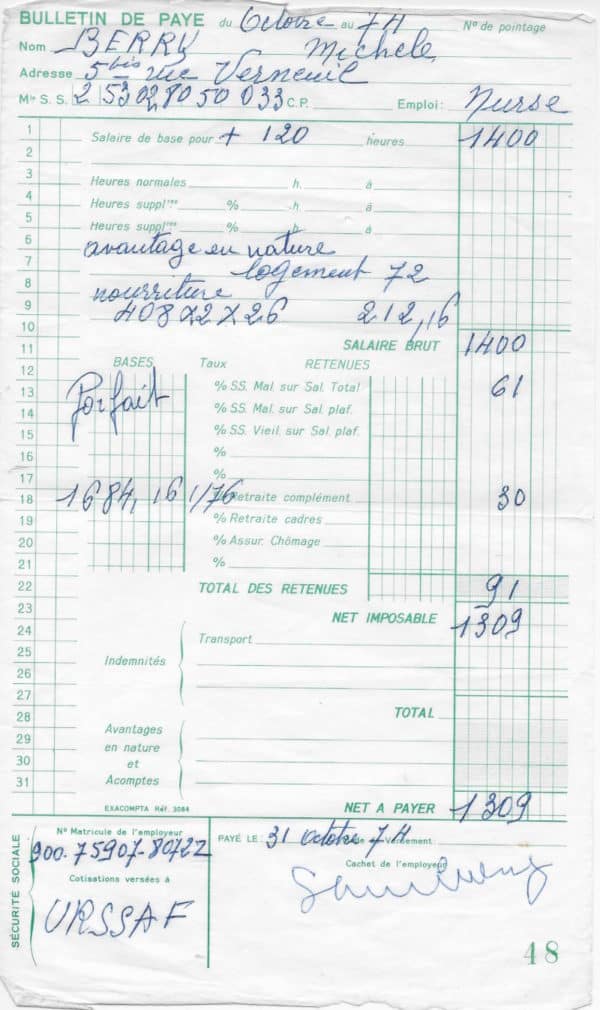 BULLETIN DE PAYE du Octobre au 74 N° de pointage
Nom BERRY Michele
Adresse 5 bis rue Verneuil
Mle S. S. 2 53 02 80 50 033 C.P. Emploi: Nurse
1 Salaire de base pour + 120 heures 1400
2
3 Heures normales h. à
4 Heures suppl res % h. à
5 Heures suppl res % h. à
6 avantage en nature
7 logement 72
8 nourriture
9 408x2x26 212,16
10
11 SALAIRE BRUT 1400
12 BASES Taux RETENUES
13 Forfait % SS. Mal. sur Sal. Total 61
14 % SS. Mal. sur Sal. plaf.
15 % SS. Vieil. sur Sal. plaf.
16 %
17 %
18 1684,16 1/76 Retraite complément 30
19 % Retraite cadres
20 % Assur. Chômage
21 %
22 TOTAL DES RETENUES 91
23 NET IMPOSABLE 1309
24 Transport
25 Indemnités
26
27
28 TOTAL
29 Avantages
30 en nature
et
31 Acomptes
EXACOMPTA Réf. 3084 NET A PAYER 1309
SÉCURITÉ SOCIALE
N° Matricule de l'employeur
900.75907-80722
Cotisations versées à
URSSAF
PAYÉ LE : 31 octobre 74
Cachet de l'employeur
48